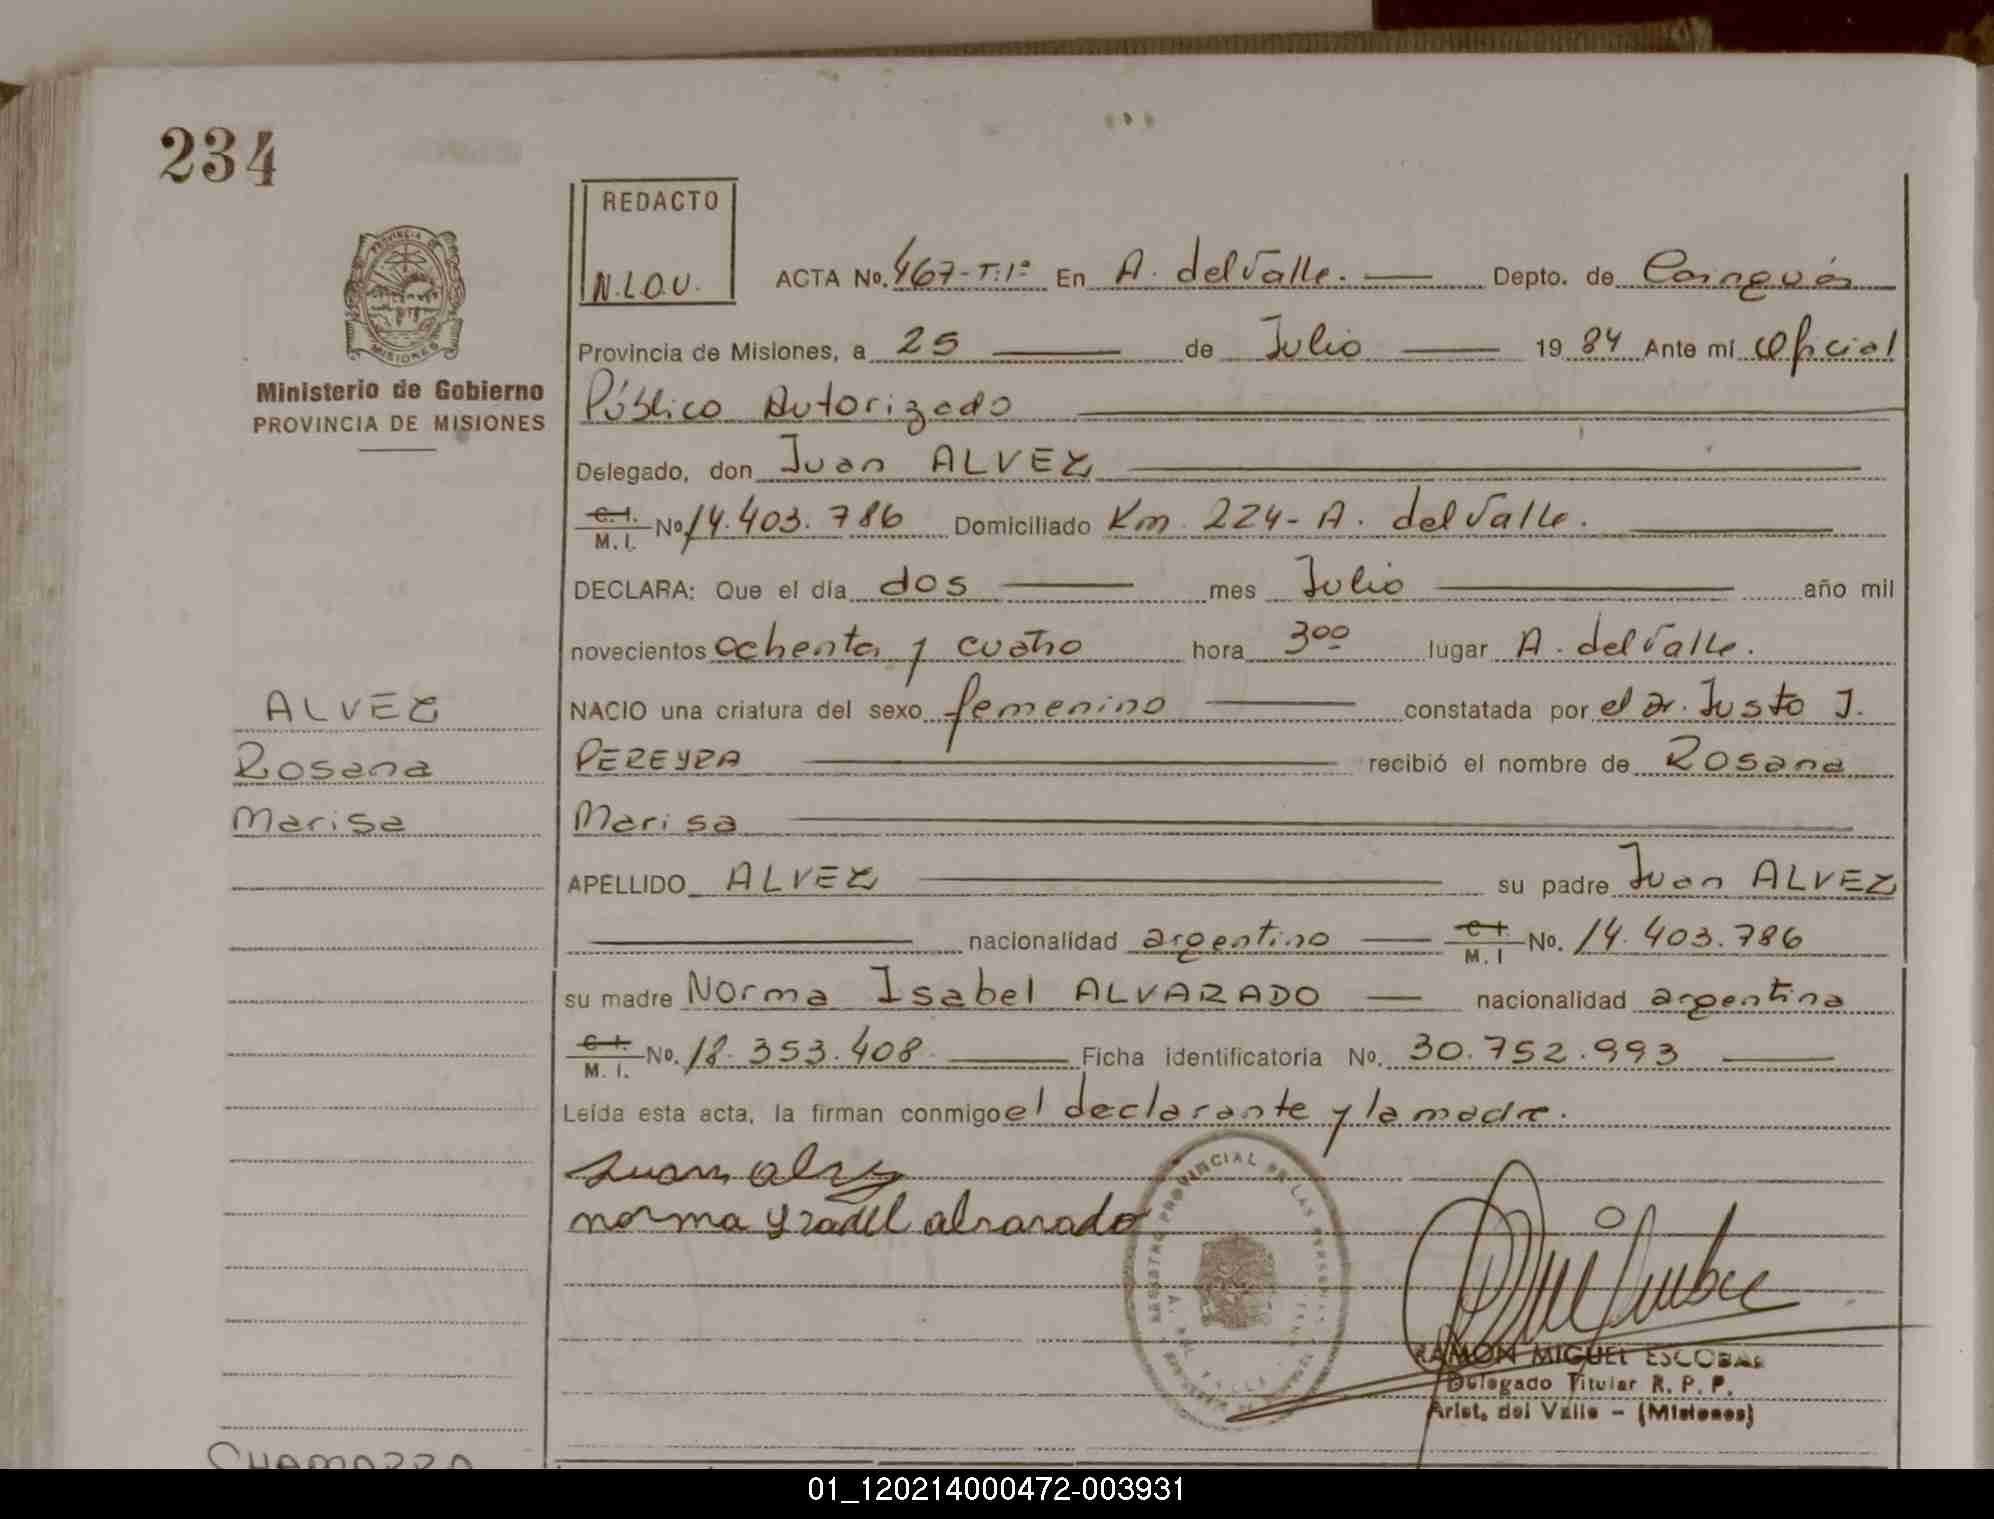 234
REDACTO
N.L.O.V.
PROVINCIA DE
MISIONES
Ministerio de Gobierno
PROVINCIA DE MISIONES
ACTA No. 467-T:1º En A. del Valle. Depto. de Cainguás
Provincia de Misiones, a 25 de Julio 1984 Ante mi Oficial
Público Autorizado
Delegado, don Juan ALVEZ
C. I.
M. I. No 14.403.786 Domiciliado Km. 224- A. del Valle.
DECLARA: Que el día dos mes Julio año mil
novecientos ochenta y cuatro hora 3oo lugar A. del Valle.
NACIO una criatura del sexo femenino constatada por el Dr. Justo J.
PEREYRA recibió el nombre de Rosana
Marisa
APELLIDO ALVEZ su padre Juan ALVEZ
nacionalidad argentino C. I. M. I No. 14.403.786
su madre Norma Isabel ALVARADO nacionalidad argentina
C. I.
M. I. No. 18.353.408 Ficha identificatoria No. 30.752.993
Leída esta acta, la firman conmigo el declarante y la madre.
ALVEZ
Rosana
Marisa
Juan alvez
norma yzabel alvarado
REGISTRO PROVINCIAL DE LAS PERSONAS
RAMON MIGUEL ESCOBAR
Delegado Titular R. P. P.
Arist. del Valle - (Misiones)
01_120214000472-003931